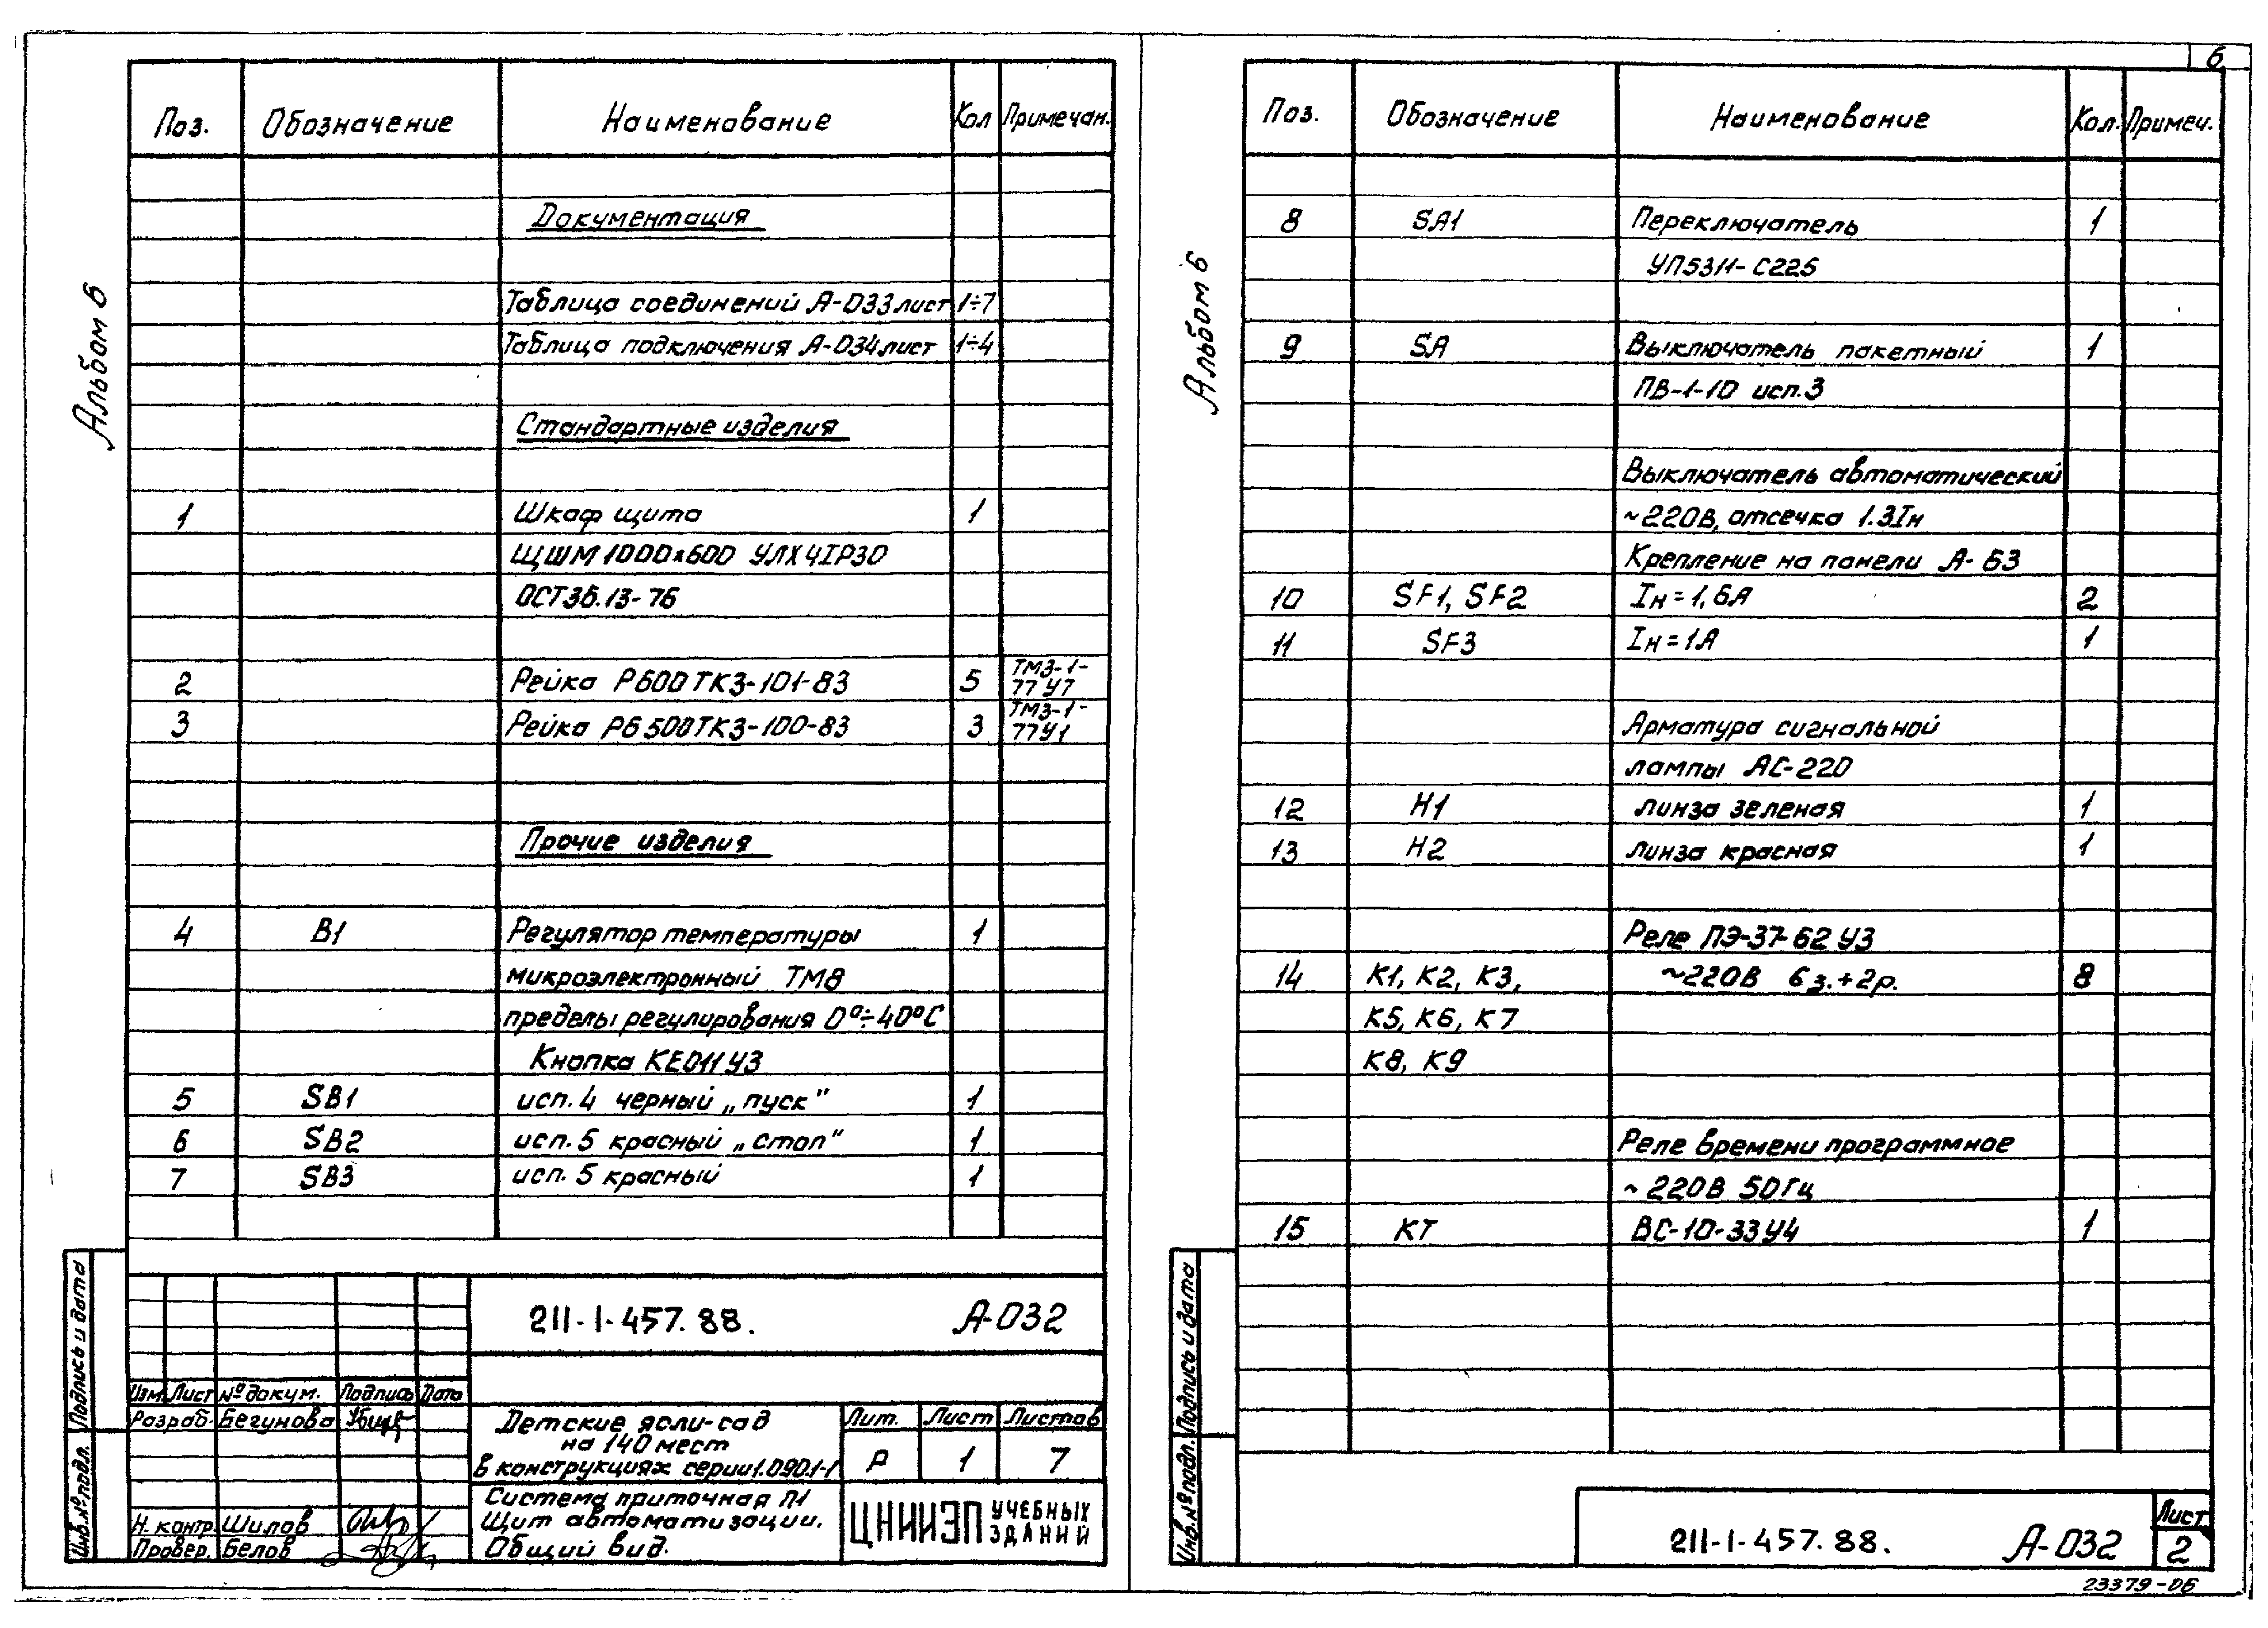 Альбом 6
Поз. Обозначение Наименование Кол Примечан.
Документация
Таблица соединений А-033 лист 1÷7
Таблица подключения А-034 лист 1÷4
Стандартные изделия
1 Шкаф щита 1
ЩШМ 1000х600 УЛХ4IP30
ОСТ36.13-76
2 Рейка Р600 ТК3-101-83 5 ТМ3-1-77 У7
3 Рейка РБ 500 ТК3-100-83 3 ТМ3-1-77У1
Прочие изделия
4 В1 Регулятор температуры 1
микроэлектронный ТМ8
пределы регулирования 0°÷40°С
Кнопка КЕ011 У3
5 SB1 исп. 4 черный „пуск" 1
6 SB2 исп. 5 красный „стоп" 1
7 SB3 исп. 5 красный 1
Подпись и дата
Инв.№ подл.
211-1-457.88. А-032
Изм. Лист № докум. Подпись Дата
Разраб. Бегунова
Н. контр. Шилов
Провер. Белов
Детские ясли-сад
на 140 мест
в конструкциях серии 1.090.1-1
Система приточная П1
Щит автоматизации.
Общий вид.
Лит. Лист Листов
Р 1 7
ЦНИИЭП УЧЕБНЫХ ЗДАНИЙ
6
Альбом 6
Поз. Обозначение Наименование Кол. Примеч.
8 SA1 Переключатель 1
УП5311-С225
9 SA Выключатель пакетный 1
ПВ-1-10 исп.3
Выключатель автоматический
~220В, отсечка 1.3Iн
Крепление на панели А-63
10 SF1, SF2 Iн=1,6А 2
11 SF3 Iн=1А 1
Арматура сигнальной
лампы АС-220
12 Н1 линза зеленая 1
13 Н2 линза красная 1
Реле ПЭ-37-62 У3
14 К1, К2, К3, ~220В 6з.+2р. 8
К5, К6, К7
К8, К9
Реле времени программное
~220В 50Гц
15 КТ ВС-10-33У4 1
Подпись и дата
Инв.№ подл.
211-1-457.88. А-032
Лист
2
23379-06